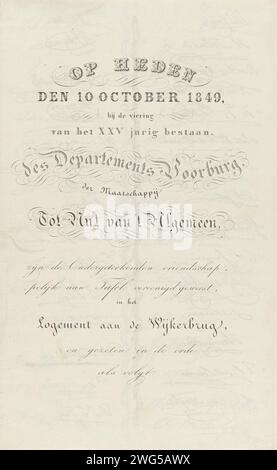 OP HEDEN
DEN 10 OCTOBER 1849,
bij de viering
van het XXV jarig bestaan.
des Departements Voorburg
der Maatschappij
Tot Nut van 't Algemeen,
zijn de Ondergeteekenden vriendschap-
pelijk aan Tafel vereenigd geweest,
in het
Logement aan de Wijkerbrug,
en gezeten in de orde
als volgt
alamy
Image ID: 2WG5AWX
www.alamy.com